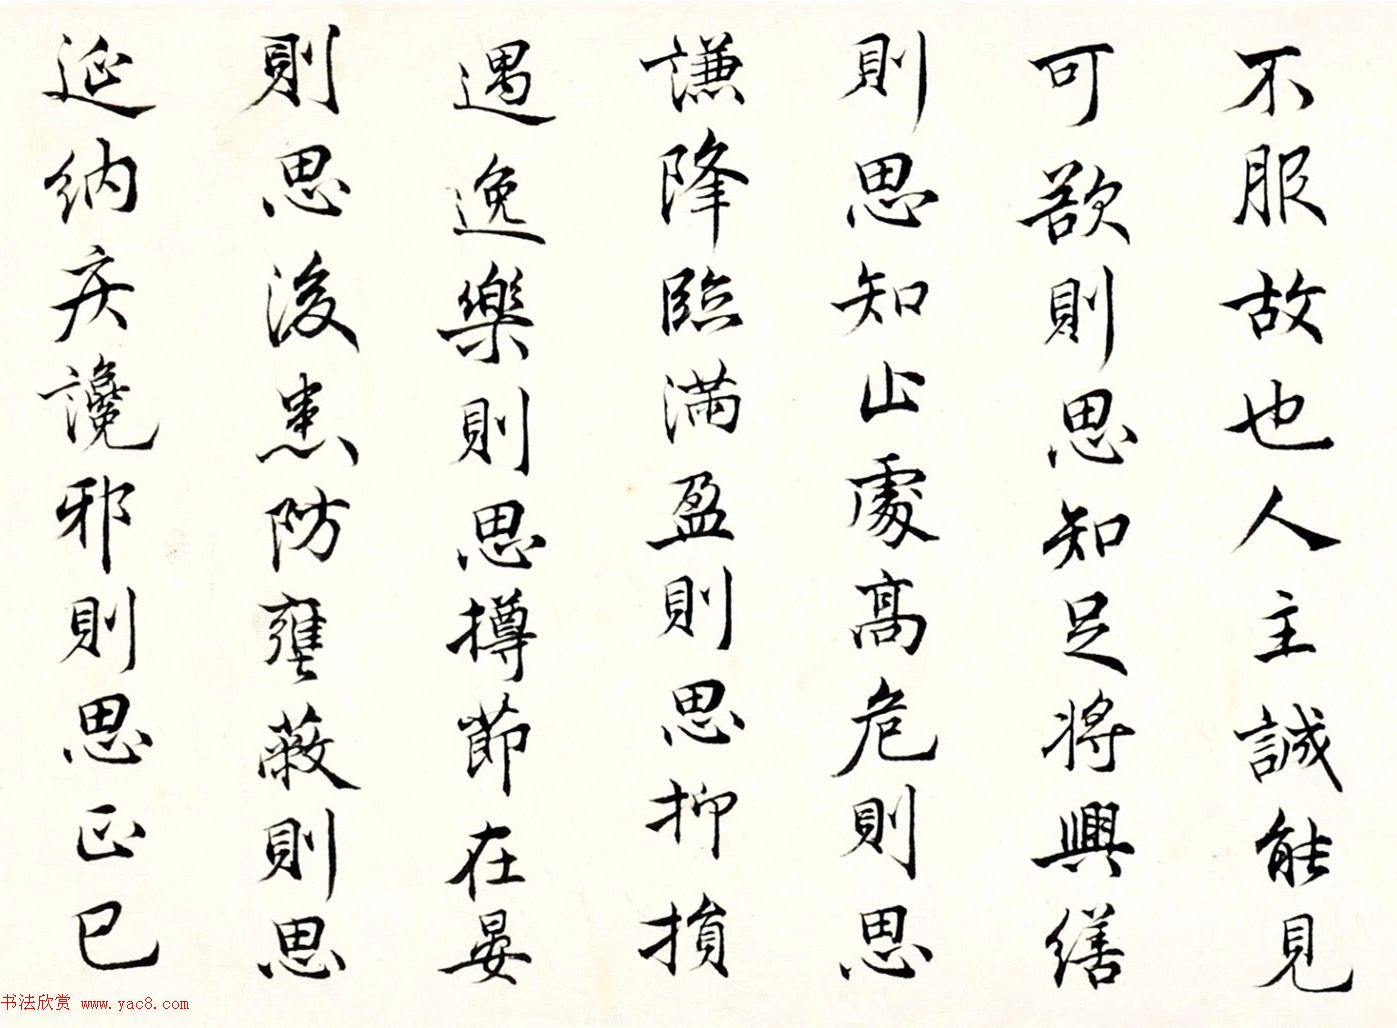 不服故也人主誠能見
可欲則思知足將興繕
則思知止處高危則思
謙降臨滿盈則思抑損
遇逸樂則思撙節在晏
則思後患防壅蔽則思
延納疾讒邪則思正己
书法欣赏 www.yac8.com